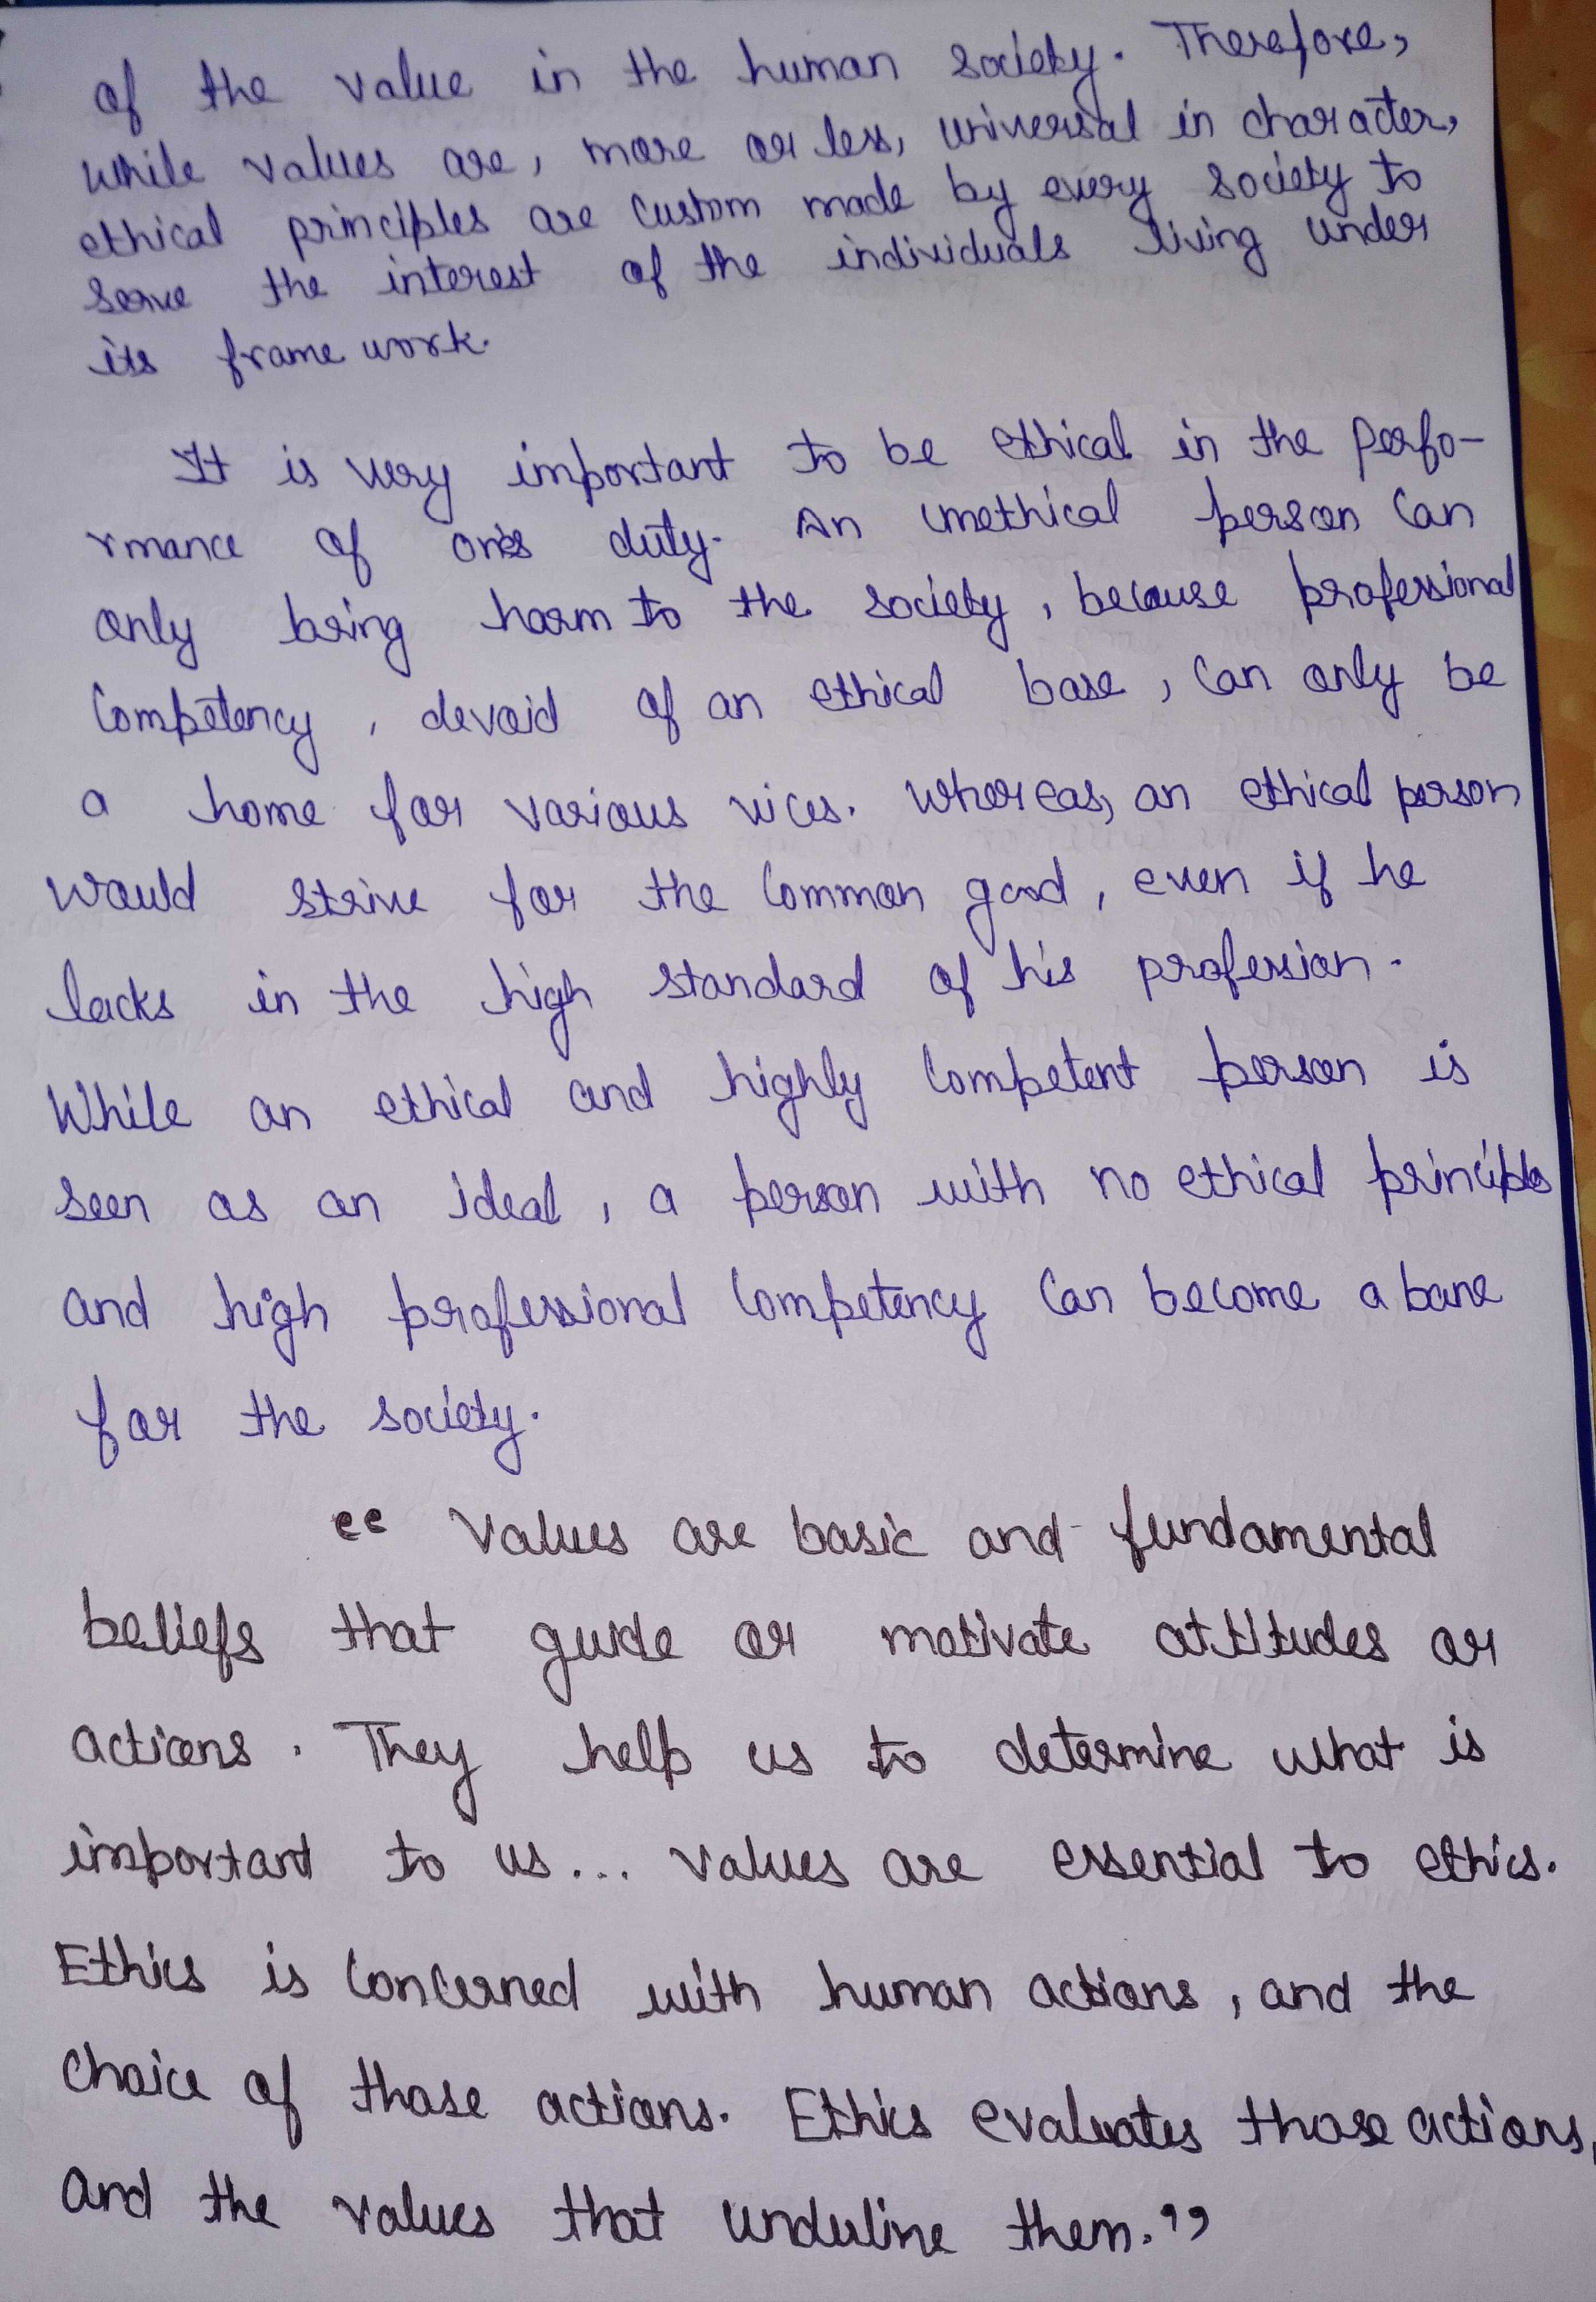 of the value in the human society. Therefore,
while values are, more or less, universal in character,
ethical principles are custom made by every society to
serve the interest of the individuals living under
its frame work.
It is very important to be ethical in the perfo-
rmance of one's duty. An unethical person can
only bring harm to the society, because professional
competency, devoid of an ethical base, can only be
a home for various vices. Whereas, an ethical person
would strive for the common good, even if he
lacks in the high standard of his profession.
While an ethical and highly competent person is
seen as an ideal, a person with no ethical principles
and high professional competency can become a bane
for the society.
“ Values are basic and fundamental
beliefs that guide or motivate attitudes or
actions. They help us to determine what is
important to us... values are essential to ethics.
Ethics is concerned with human actions, and the
choice of those actions. Ethics evaluates those actions,
and the values that underline them.”